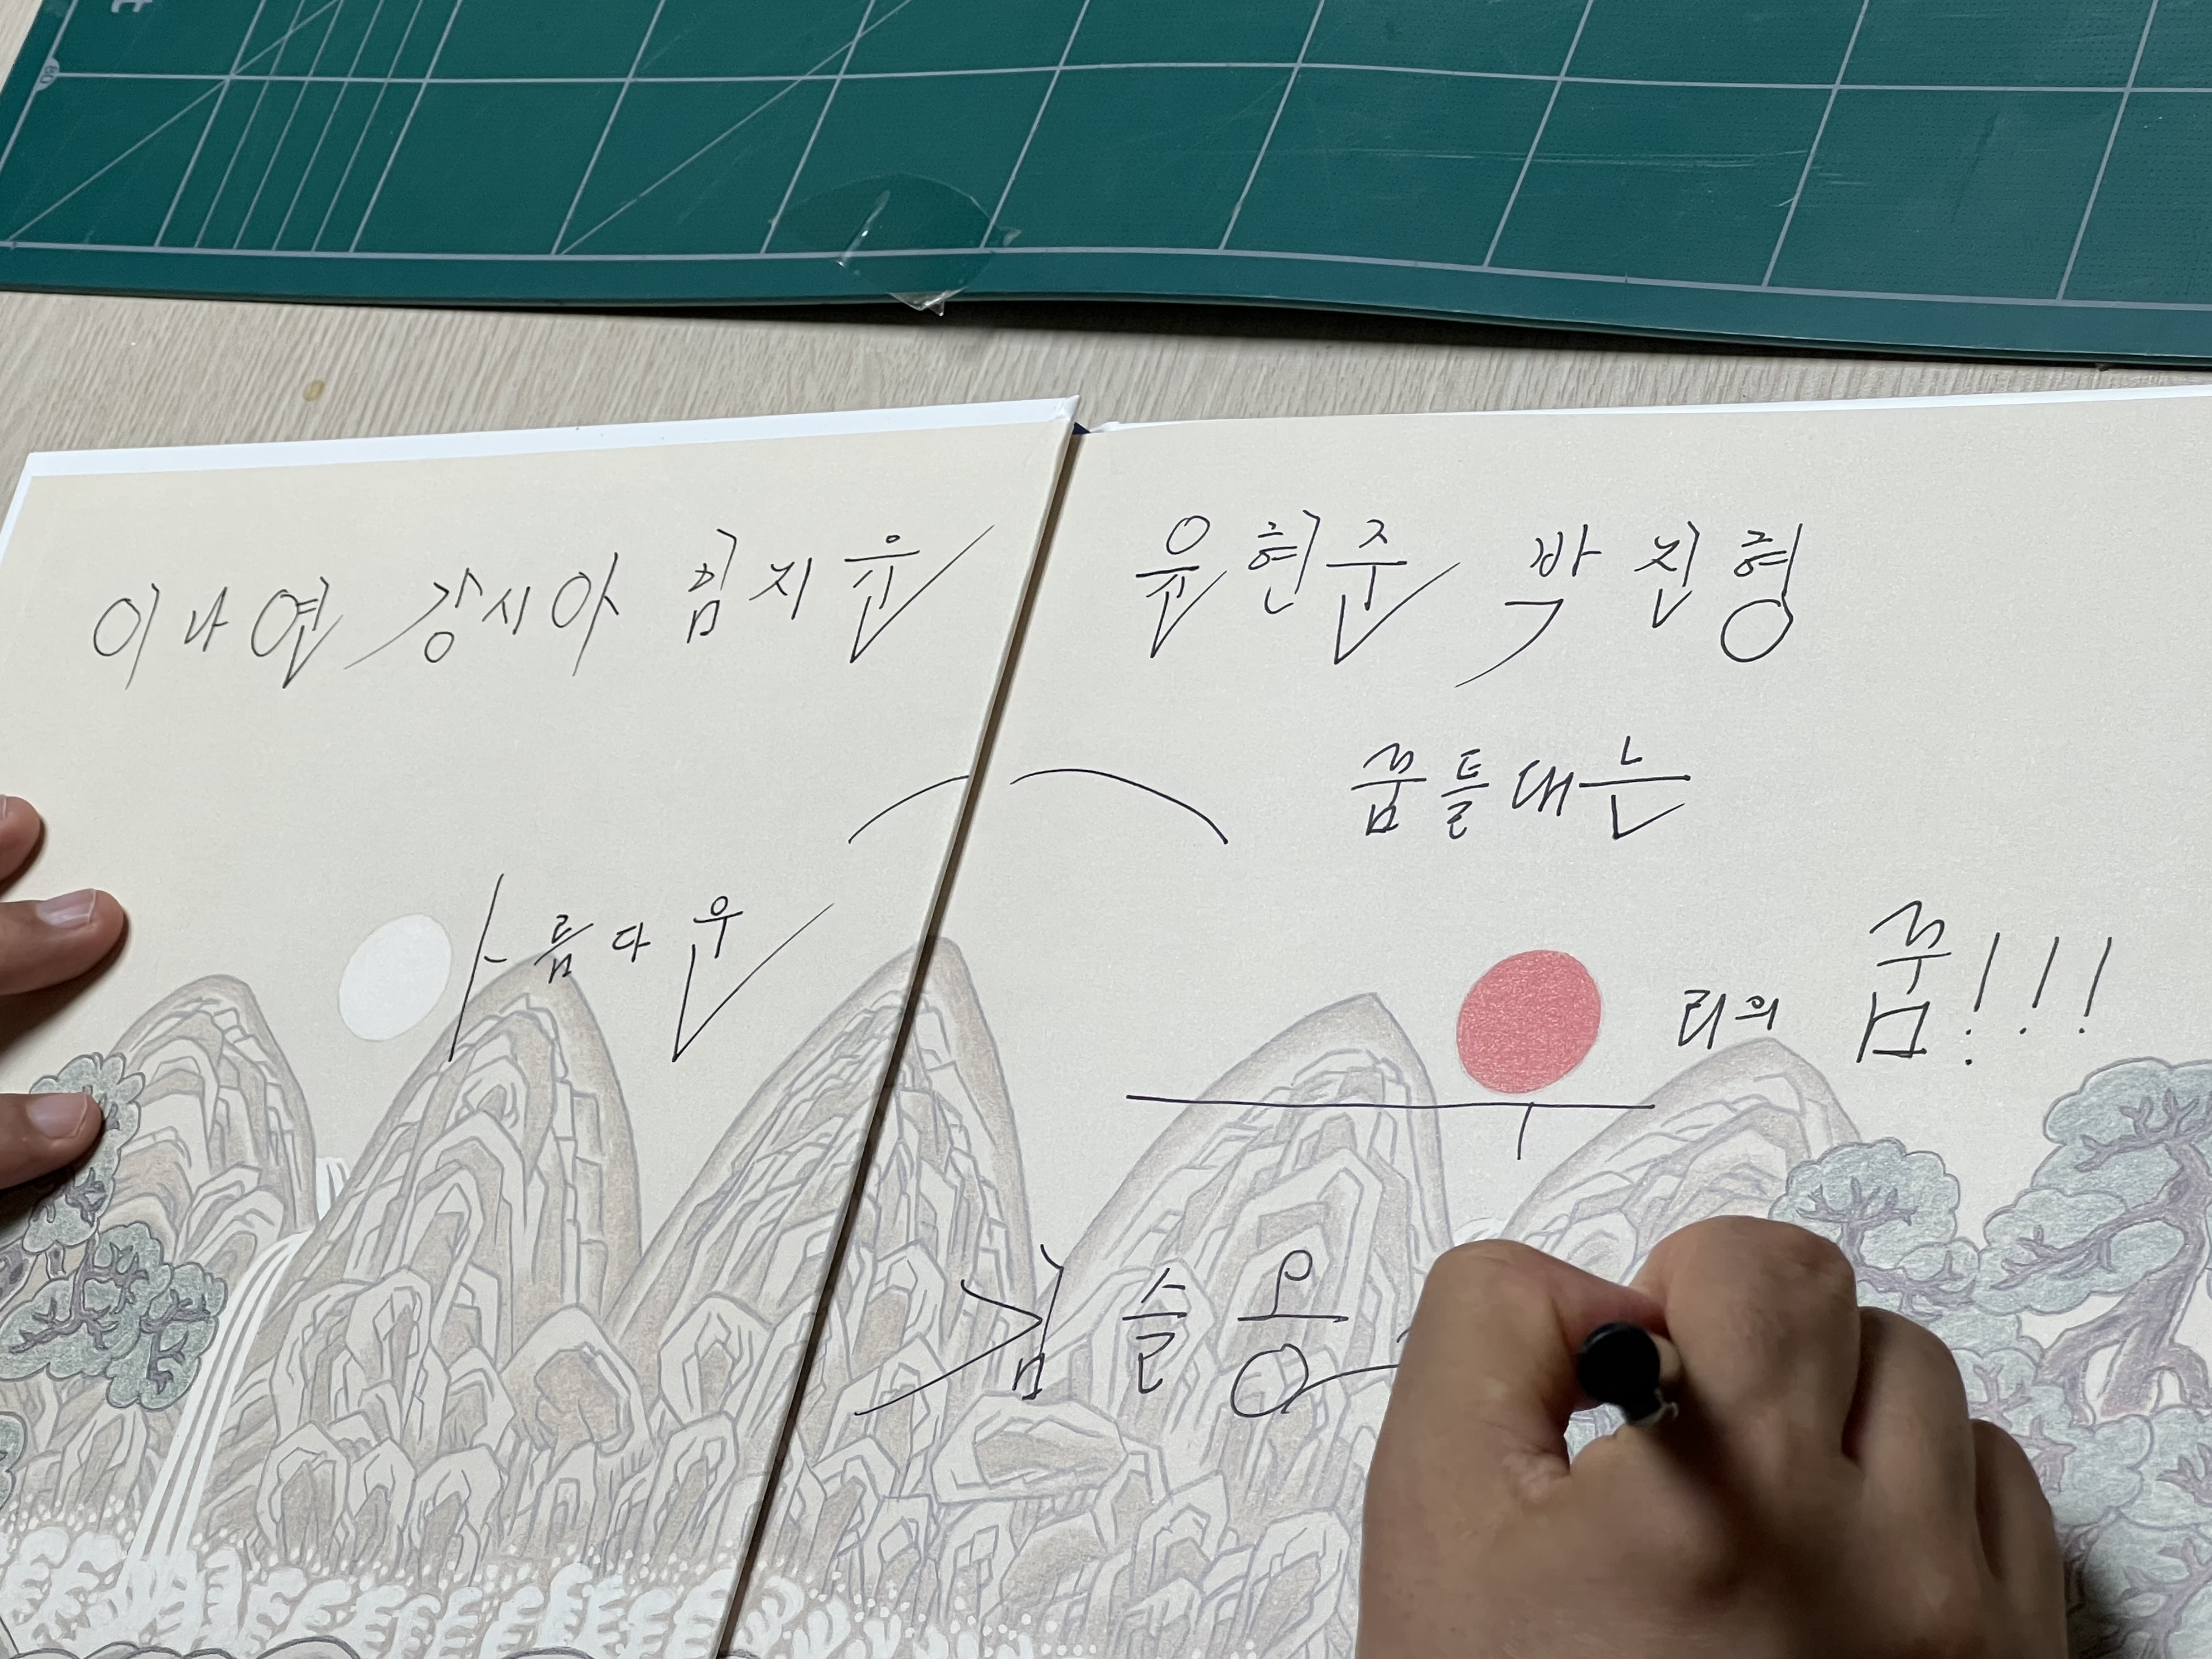 이나연 강시아 윤현준 박진형
꿈틀대는
아름다운 우리의 꿈!!!
김슬옹